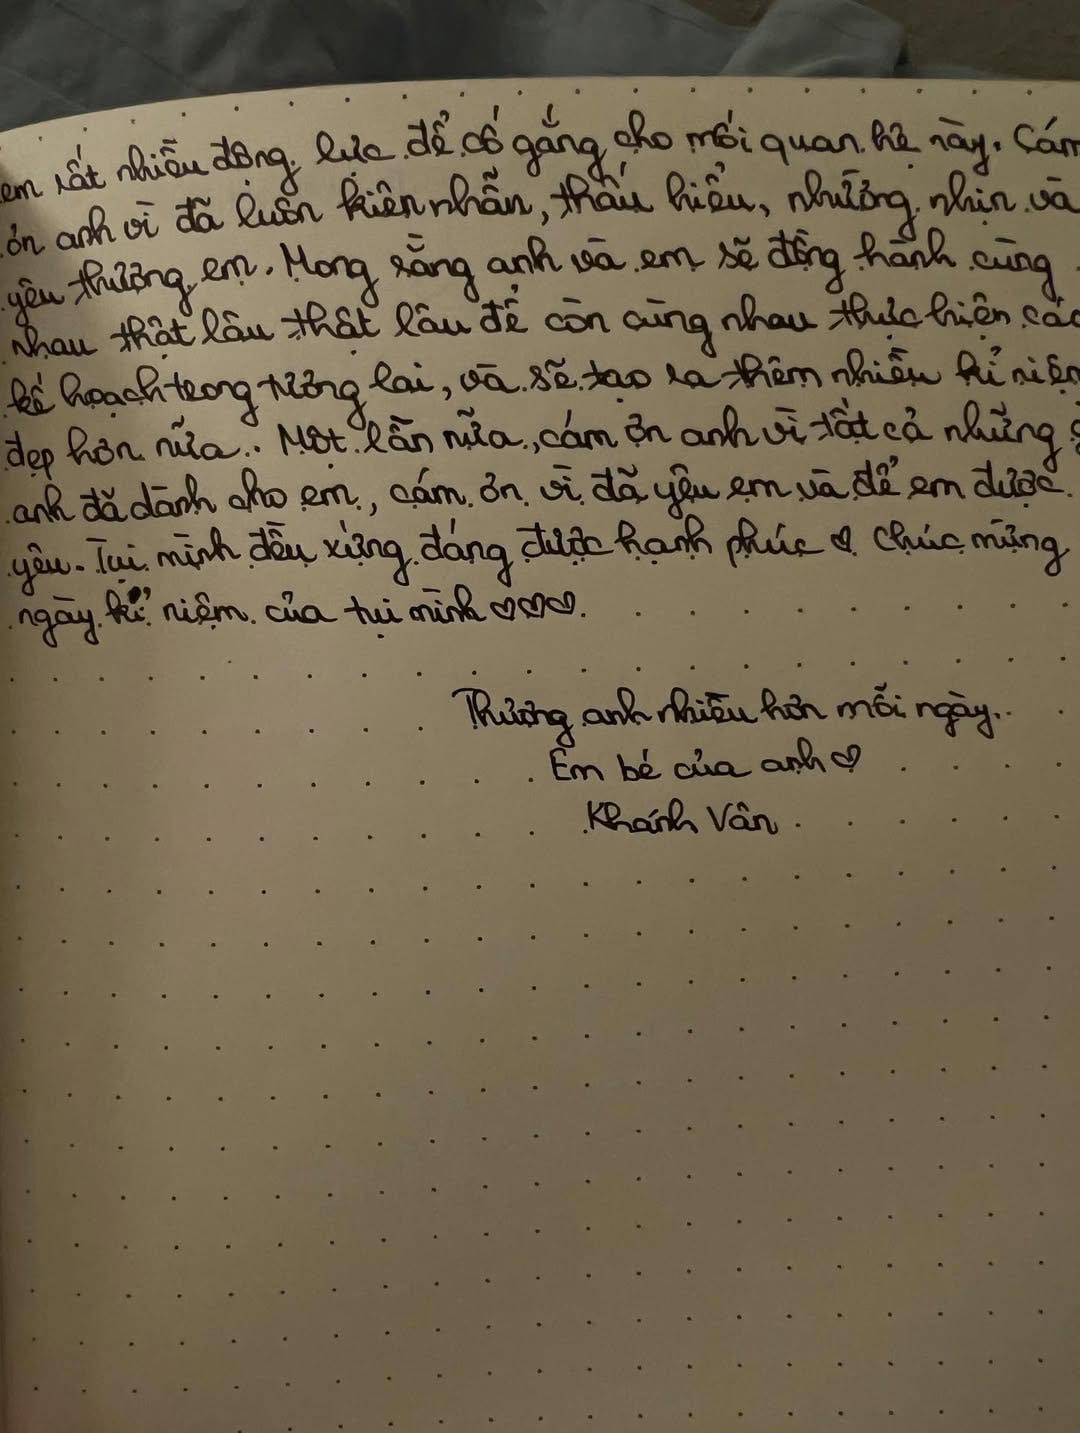 em rất nhiều động lực để cố gắng cho mối quan hệ này. Cám
ơn anh vì đã luôn kiên nhẫn, thấu hiểu, nhường nhịn và
yêu thương em. Mong rằng anh và em sẽ đồng hành cùng
nhau thật lâu thật lâu để còn cùng nhau thực hiện các
kế hoạch trong tương lai, và sẽ tạo ra thêm nhiều kỉ niệm
đẹp hơn nữa.. Một lần nữa, cám ơn anh vì tất cả những
anh đã dành cho em, cám ơn vì đã yêu em và để em được
yêu. Tụi mình đều xứng đáng được hạnh phúc ♡ Chúc mừng
ngày kỉ niệm của tụi mình ♡♡♡.
Thương anh nhiều hơn mỗi ngày..
Em bé của anh ♡
Khánh Vân